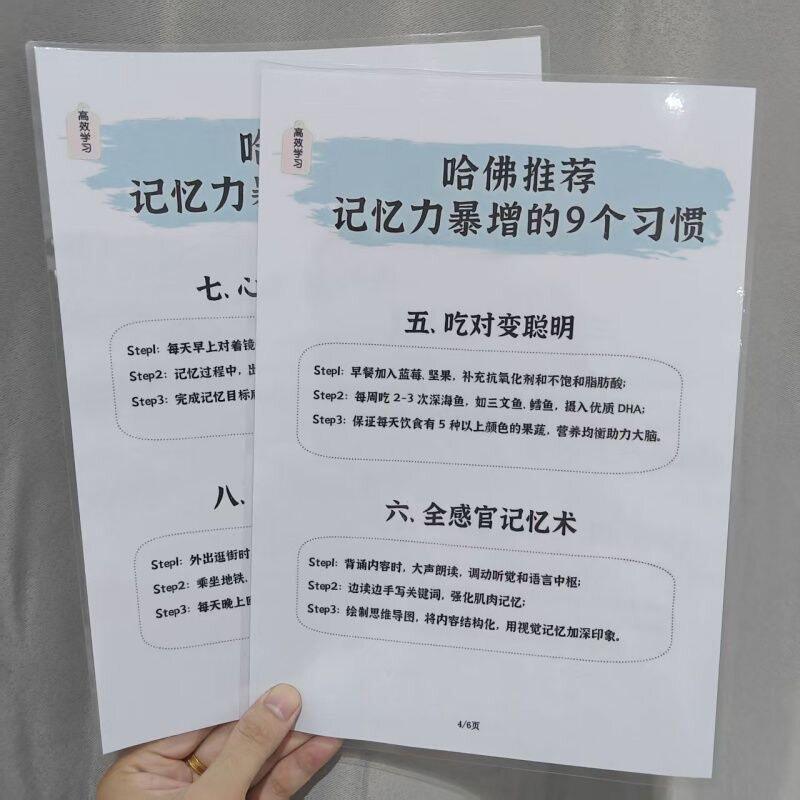 高效学习
哈
记忆力暴
七、心
Step1: 每天早上对着镜
Step2: 记忆过程中,
Step3: 完成记忆目标
八、
Step1: 外出逛街时
Step2: 乘坐地铁,
Step3: 每天晚上
高效学习
哈佛推荐
记忆力暴增的9个习惯
五、吃对变聪明
Step1: 早餐加入蓝莓、坚果，补充抗氧化剂和不饱和脂肪酸;
Step2: 每周吃 2-3 次深海鱼，如三文鱼、鳕鱼，摄入优质 DHA;
Step3: 保证每天饮食有 5 种以上颜色的果蔬，营养均衡助力大脑。
六、全感官记忆术
Step1: 背诵内容时，大声朗读，调动听觉和语言中枢;
Step2: 边读边手写关键词，强化肌肉记忆;
Step3: 绘制思维导图，将内容结构化，用视觉记忆加深印象。
4/6页